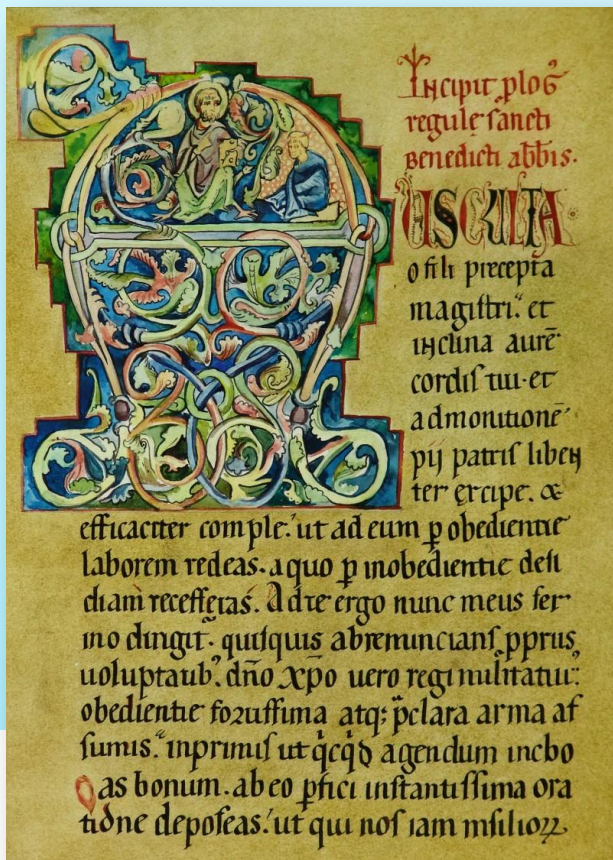 Incipit plog̅
regule sancti
Benedicti abb̅is.
AUSCULTA
o fili precepta
magistri. et
inclina aure̅
cordis tui. et
admonitione̅
pij patris liben
ter excipe. &
efficaciter comple. ut ad eum p obedientie
laborem redeas. a quo p inobedientie desi
diam recesseras. Ad te ergo nunc meus ser
mo dirigit. quisquis abrenuncians pprus
uoluptatib. dn̅o xp̅o uero regi militatu:
obedientie fortissima atq; pclara arma as
sumis. inprimis ut qcqd agendum incho
as bonum. ab eo pfici instantissima ora
tione deposcas. ut qui nos iam